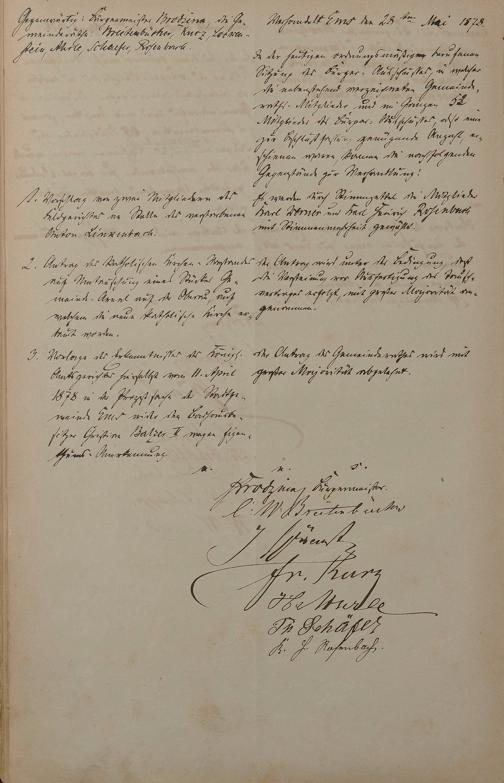 Gegenwärtig: Bürgermeister Brodzina, die Ge-
meinderäthe: Breitenbücher, Kurz, Loewen-
stein, Aherle, Schaefer, Rosenbach.
Verhandelt Ems den 28ten Mai 1878.
In der heutigen ordnungsmäßigen berufenen
Sitzung des Bürger-Ausschusses, in welcher
die nebenstehend verzeichneten Gemeinde-
raths-Mitglieder und im Ganzen 52
Mitglieder des Bürger-Ausschusses, also eine
zur Beschlußfassung genügende Anzahl, er-
schienen waren, kamen die nachfolgenden
Gegenstände zur Verhandlung:
1. Vorschlag von zwei Mitgliedern des
Feldgerichtes an Stelle des verstorbenen
Anton Linkenbach.
Es werden durch Stimmzettel die Mitglieder
Karl Werner und Karl Heinrich Rosenbach
mit Stimmenmehrheit gewählt.
2. Antrag des katholischen Kirchen-Vorstandes
auf Umtauschung eines Stückes Ge-
meinde-Areal auf der Oberau, auf
welchem die neue katholische Kirche er-
baut worden.
Der Antrag wird unter der Bedingung, daß
die Vorsteinung vor Ausfertigung des Tausch-
vertrages erfolgt, mit großer Majorität an-
genommen.
3. Vorlage des Erkenntnisses des Königl.
Amtsgerichtes hierselbst vom 11. April
1878 in der Prozeßsache der Stadtge-
meinde Ems wider den Badhausbe-
sitzer Christian Balzer II wegen Eigen-
thums-Anerkennung.
Der Antrag des Gemeinderathes wird mit
großer Majorität abgelehnt.
a. u. s.
Brodzina, Bürgermeister.
C. W. Breitenbücher
Fr. Kurz
Th. Schäfer
K. H. Rosenbach.